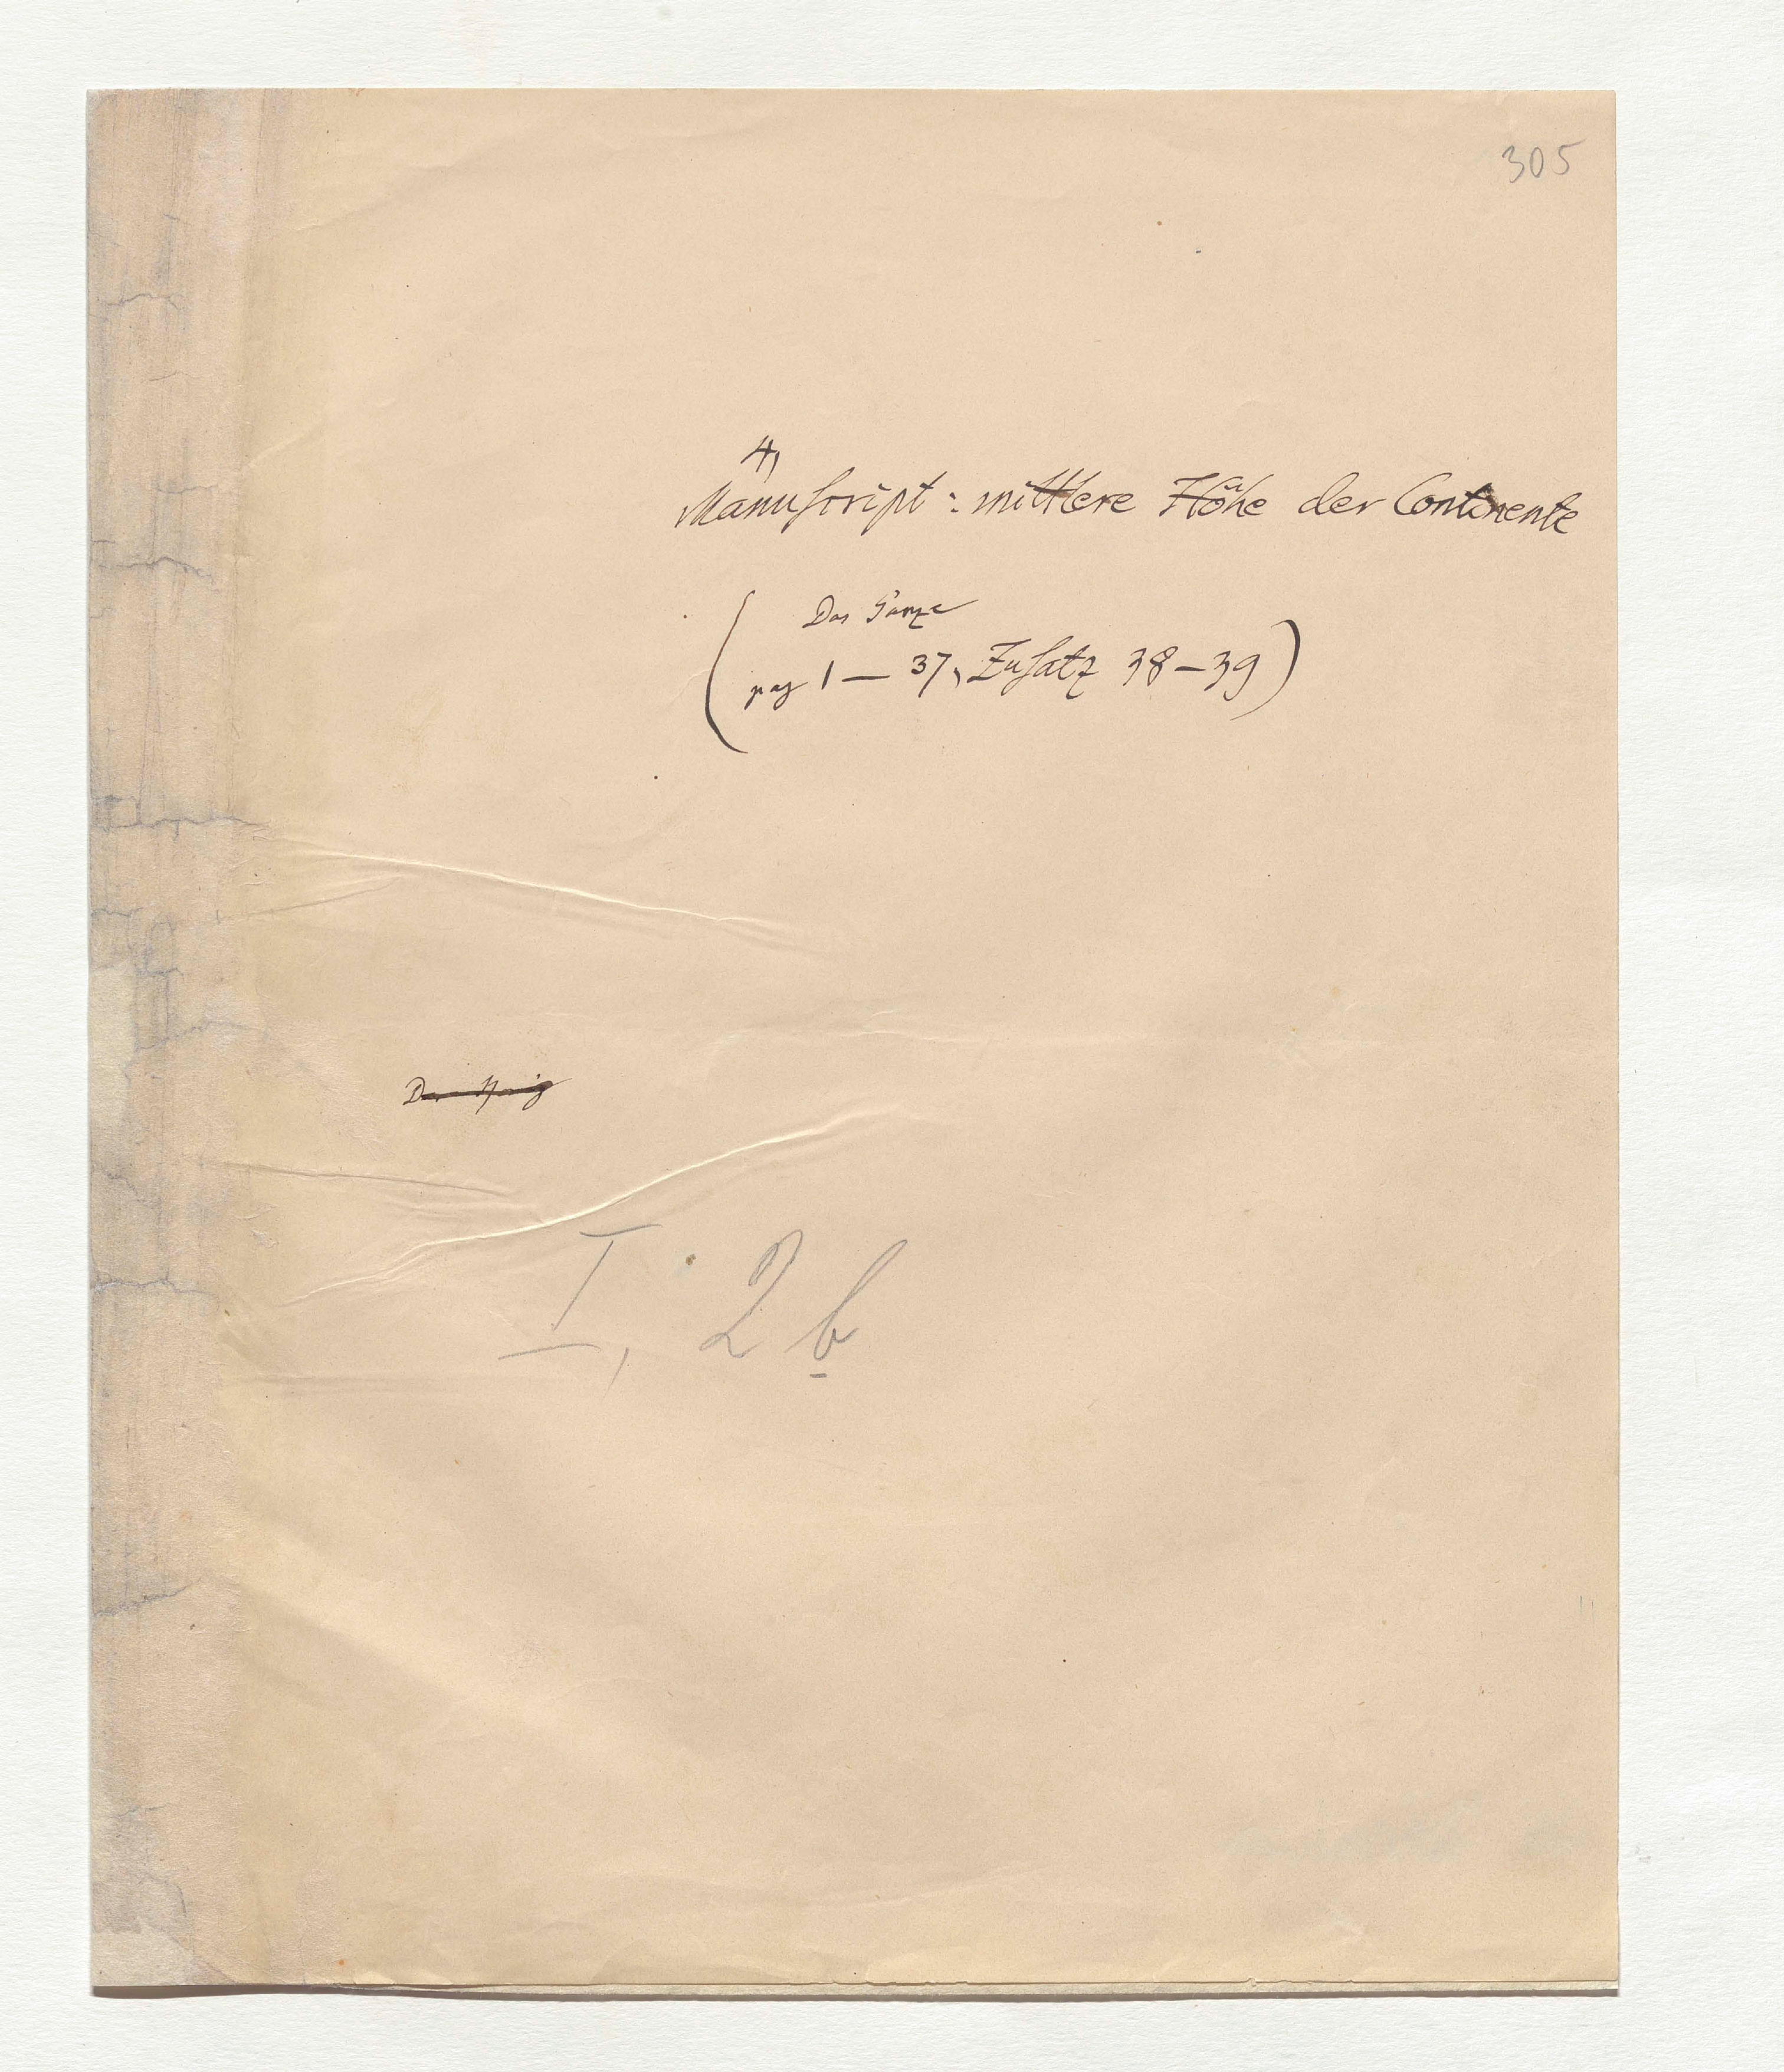 305
4,
Manuscript: mittlere Höhe der Continente
Das Ganze
(pag 1 — 37, Zusatz 38–39)
I, 2 b